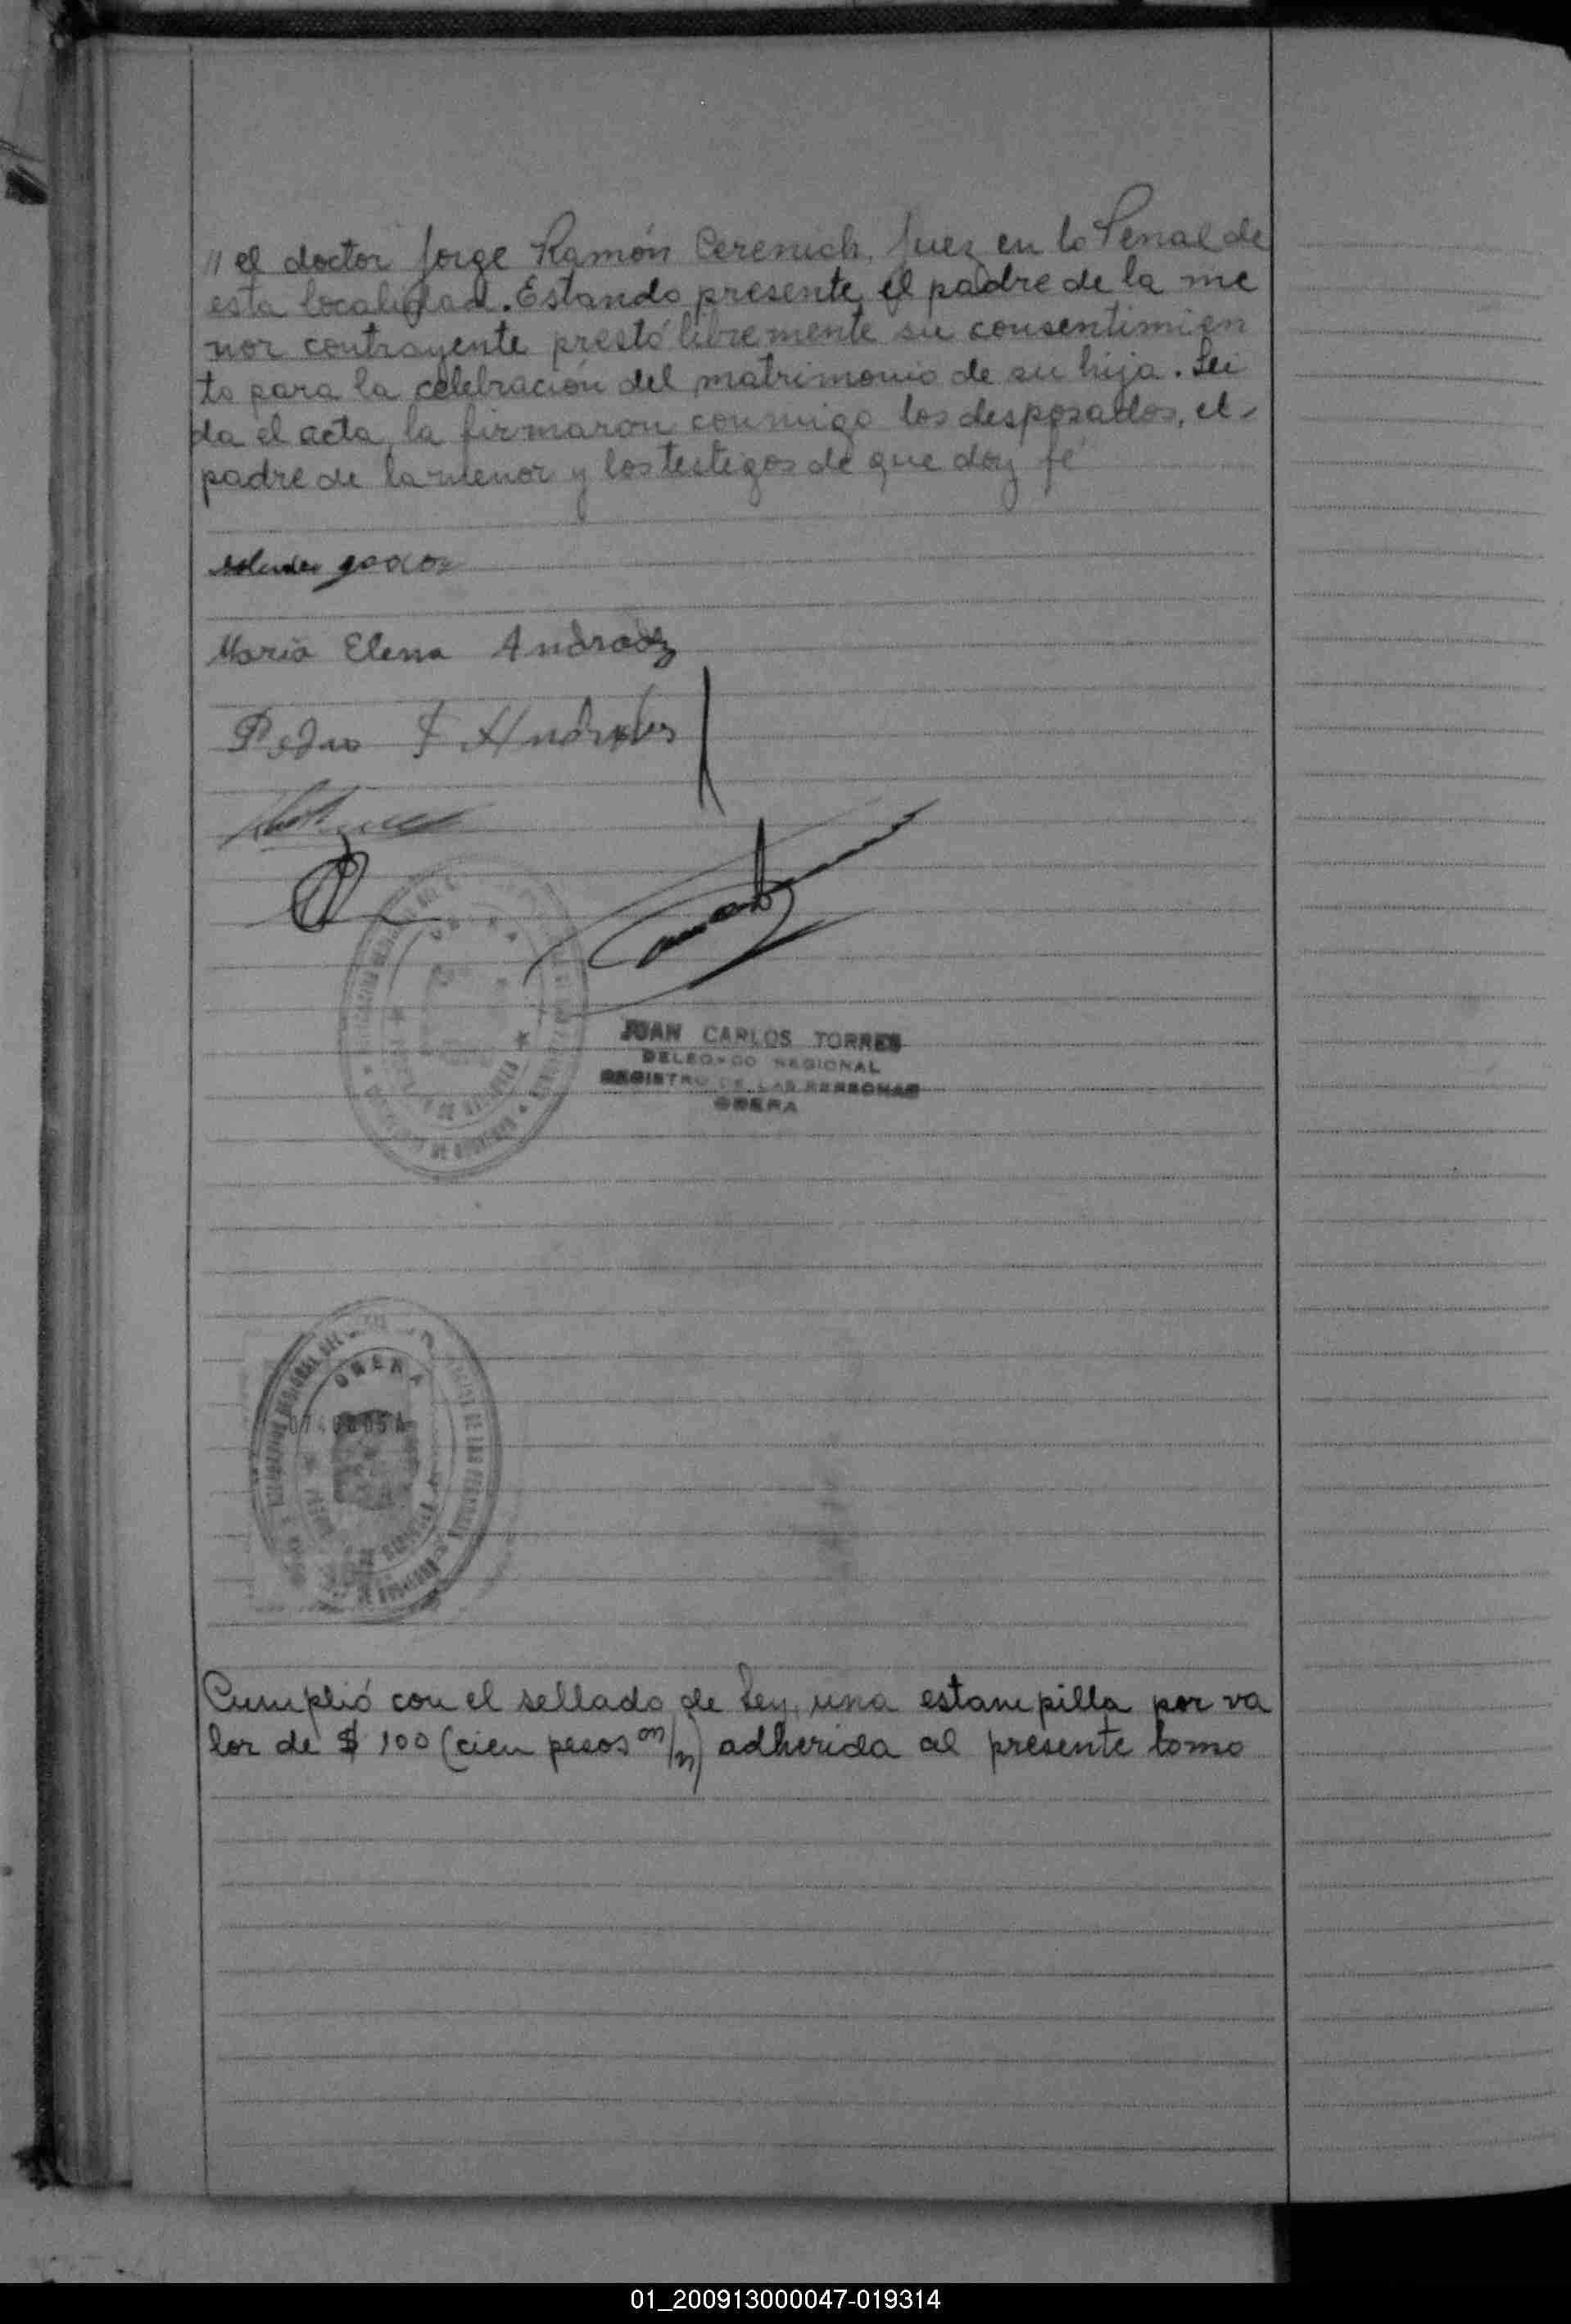 " el doctor Jorge Ramón Cerenich, Juez en lo Penal de
esta localidad. Estando presente el padre de la me
nor contrayente prestó libremente su consentimien
to para la celebración del matrimonio de su hija. Lei
da el acta, la firmaron conmigo los desposados, el
padre de la menor y los testigos de que doy fé
Maria Elena Andradez
Pedro
JUAN CARLOS TORRES
DELEGADO REGIONAL
REGISTRO DE LAS PERSONAS
OBERA
OBERA
Cumplió con el sellado de Ley, una estampilla por va
lor de $ 100 (cien pesos m/n) adherida al presente tomo
01_200913000047-019314